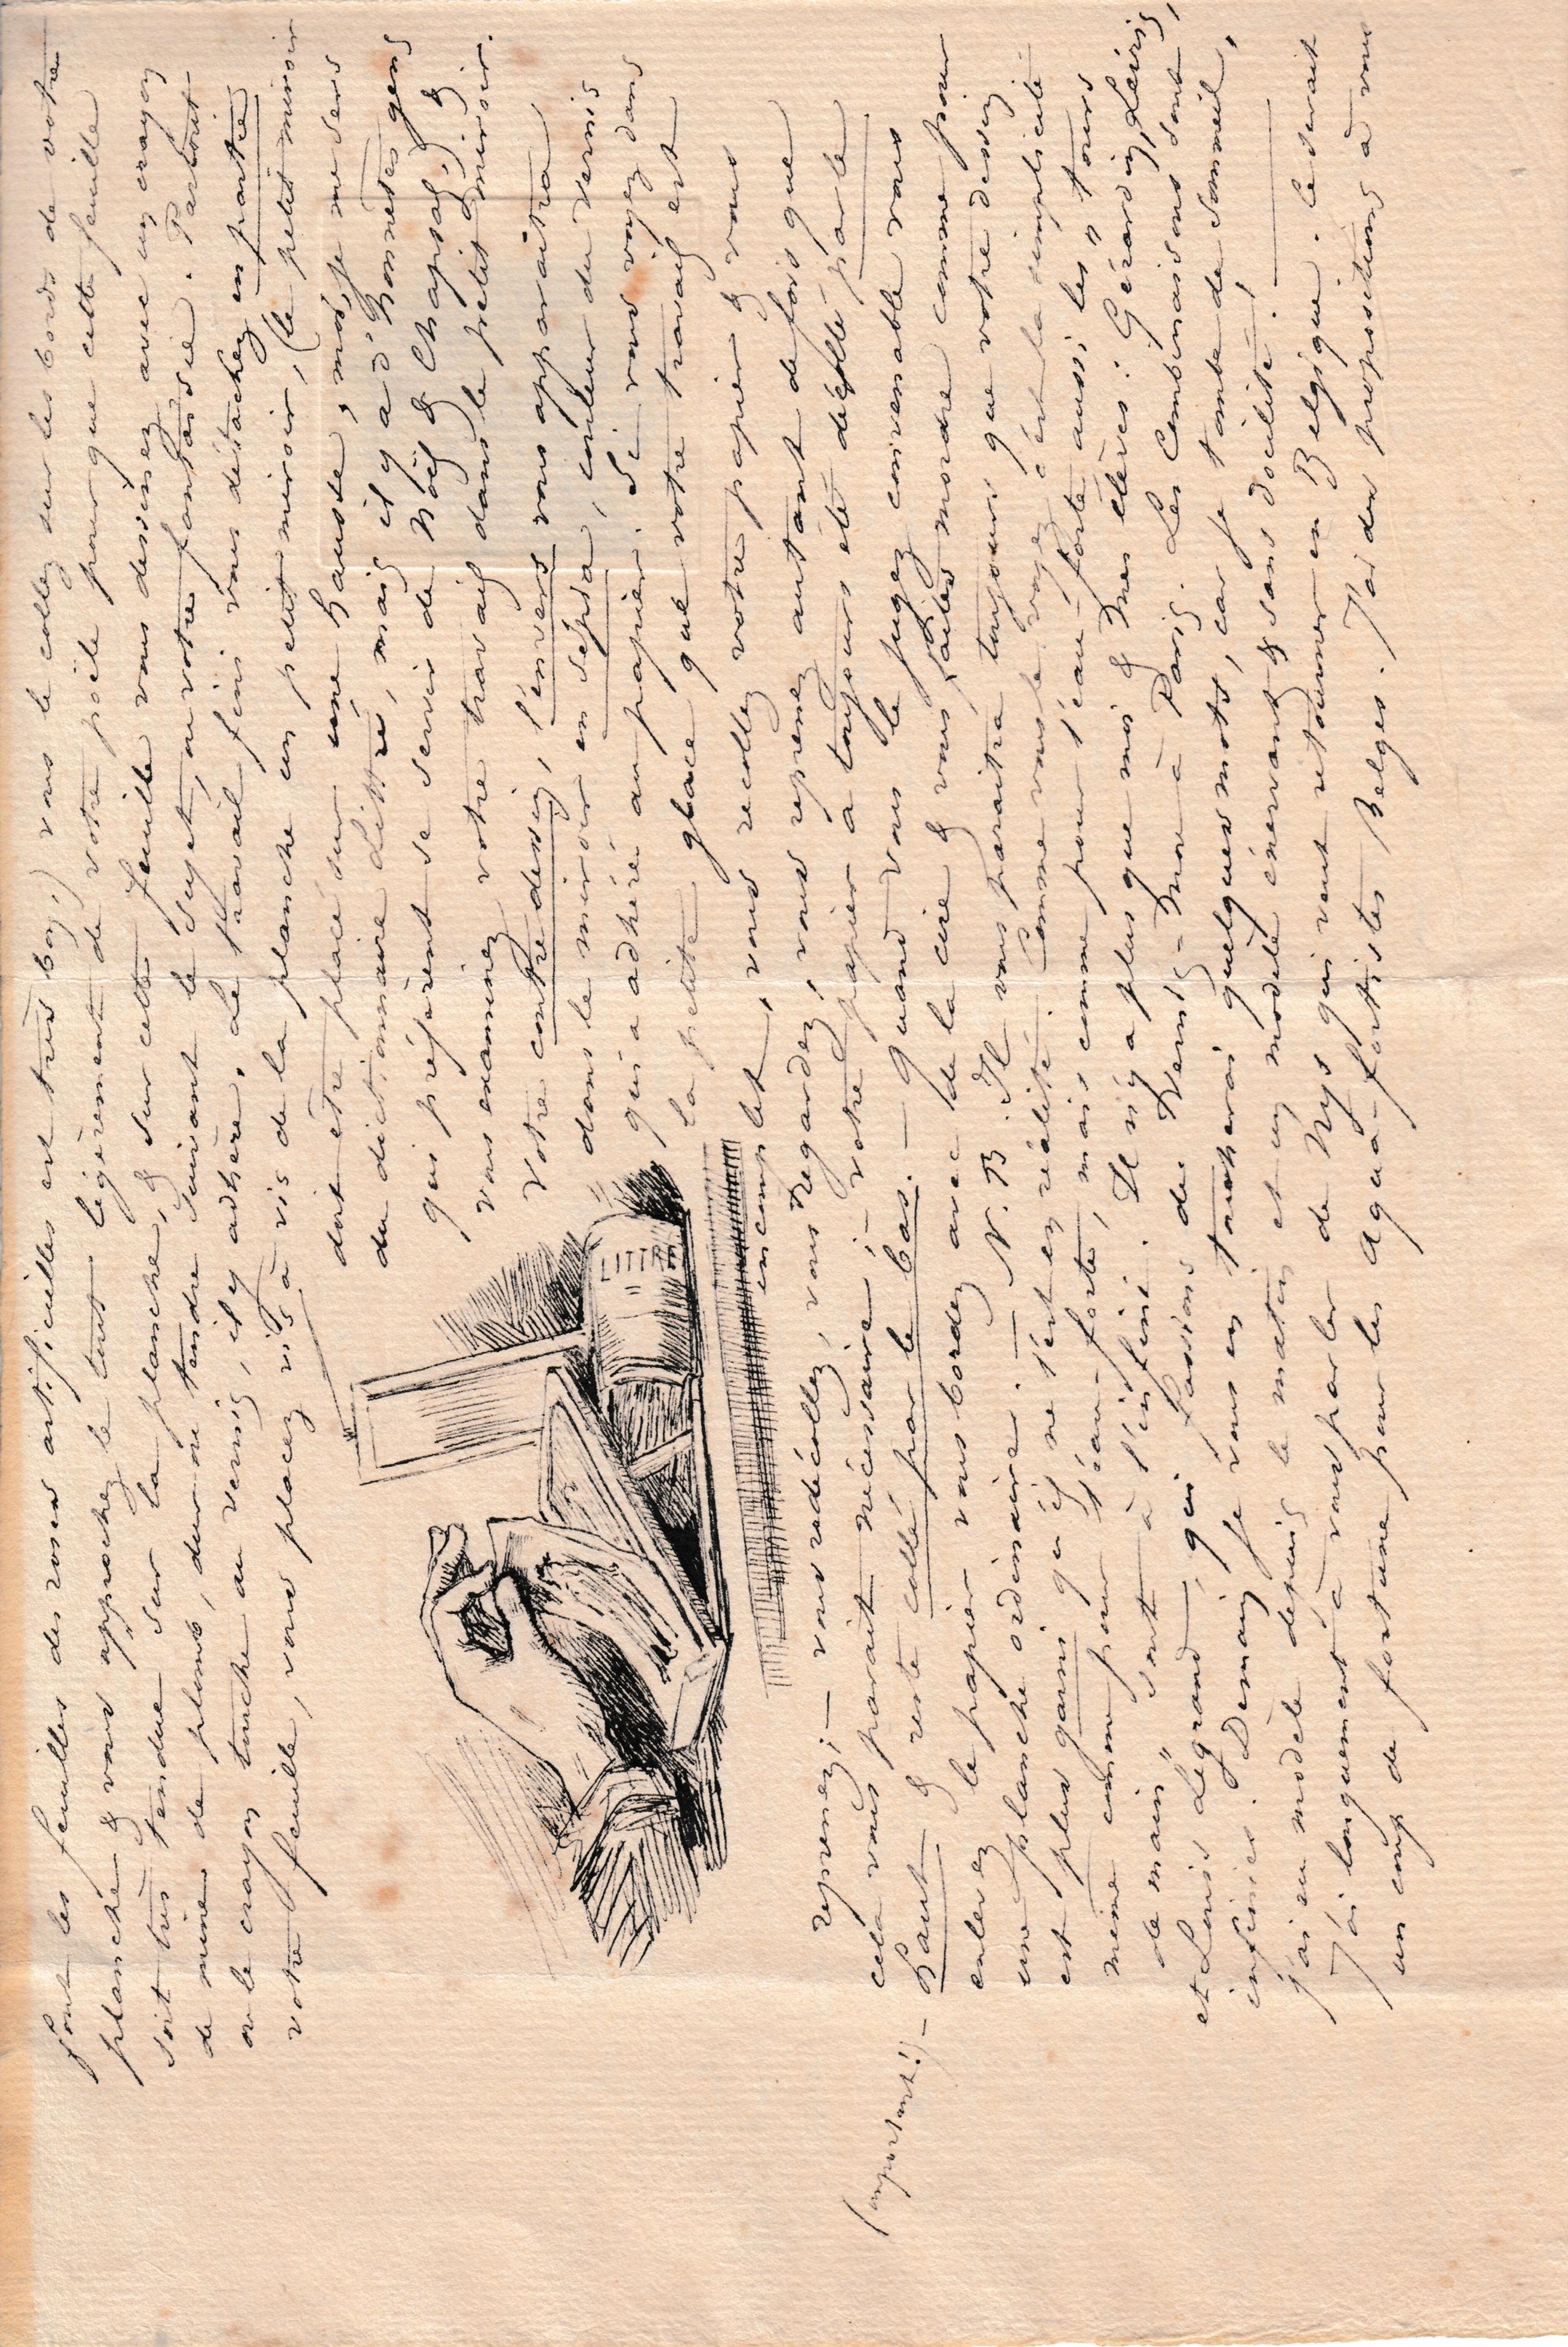 font les feuilles des roses artificielles est très bon,) vous le collez sur les bords de votre
planche & vous approchez le tout légèrement de votre poële pour que cette feuille
soit très tendue sur la planche, & sur cette feuille vous dessinez avec un crayon
de mine de plomb, dur ou tendre suivant le sujet, ou votre fantaisie. Partout
où le crayon touche au vernis, il y adhère. Le travail fini vous détachez en partie
votre feuille, vous placez vis à vis de la planche un petit miroir, (le petit miroir
doit être placé sur une hausse, moi, je me sers
du dictionnaire Littré, mais il y a d'honnêtes gens
qui préfèrent se servir de Noël & Chapsal,) &
vous examinez votre travail dans le petit miroir.
Votre contre dessin, l'envers vous apparaîtra
dans le miroir en sépia, couleur du vernis
qui a adhéré au papier. Si vous voyez dans
la petite glace que votre travail est
incomplet, vous recollez votre papier & vous
reprenez; — vous redécollez, vous regardez, vous reprenez autant de fois que
cela vous parait nécessaire; — votre papier a toujours été décollé par le
(important!) — haut & reste collé par le bas. — Quand vous le jugez convenable vous
enlevez le papier vous bordez avec de la cire & vous faites mordre comme pour
une planche ordinaire. — N.B. Il vous paraitra toujours que votre dessin
est plus garni qu'il ne l'est en réalité. Comme vous le voyez c'est la simplicité
même comme pour l'eau-forte, mais comme pour l'eau-forte aussi, les "tours
de main" sont à l'infini. Il n'y a plus que moi & mes élèves: Gérardin, Leiris,
et Louis Legrand, qui fassions de Vernis-Mou à Paris. Les Combinaisons sont
infinies. Demain je vous en toucherai quelques mots, car je tombe de sommeil,
j'ai eu modèle depuis le matin et un modèle énervant & sans docilité!
J'ai longuement à vous parler de Nys qui veut retourner en Belgique. Ce serait
un coup de fortune pour les Aqua-fortistes Belges. J'ai des propositions à vous